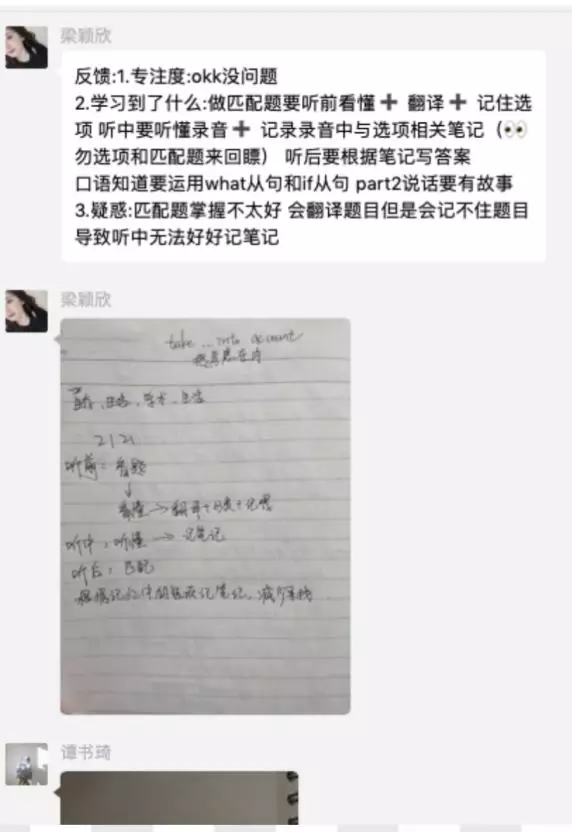 梁颖欣
反馈:1.专注度:okk没问题
2.学习到了什么:做匹配题要听前看懂➕ 翻译➕ 记住选
项 听中要听懂录音➕ 记录录音中与选项相关笔记（👀
勿选项和匹配题来回瞟） 听后要根据笔记写答案
口语知道要运用what从句和if从句 part2说话要有故事
3.疑惑:匹配题掌握不太好 会翻译题目但是会记不住题目
导致听中无法好好记笔记
梁颖欣
take ... into account
把考虑在内
听前：看题
↓
看懂→翻译+分类+记忆
听中：听懂→记笔记
听后：匹配
谭书琦